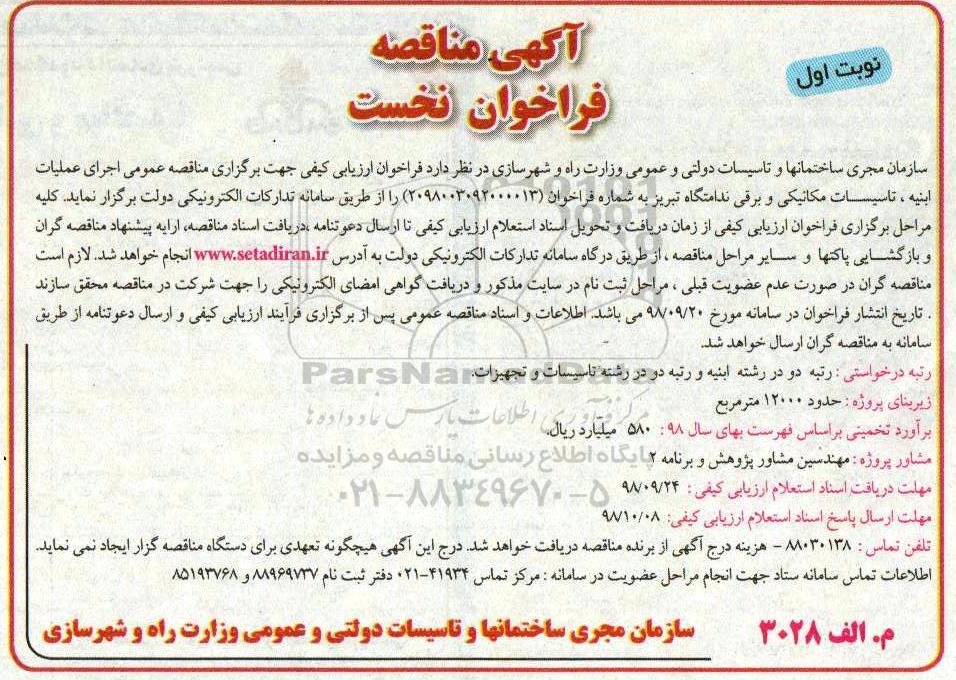 آگهی مناقصه
فراخوان نخست
نوبت اول
سازمان مجری ساختمانها و تاسیسات دولتی و عمومی وزارت راه و شهرسازی در نظر دارد فراخوان ارزیابی کیفی جهت برگزاری مناقصه عمومی اجرای عملیات
ابنیه ، تاسیسات مکانیکی و برقی ندامتگاه تبریز به شماره فراخوان (۲۰۹۸۰۰۳۰۹۲۰۰۰۰۱۳) را از طریق سامانه تدارکات الکترونیکی دولت برگزار نماید. کلیه
مراحل برگزاری فراخوان ارزیابی کیفی از زمان دریافت و تحویل اسناد استعلام ارزیابی کیفی تا ارسال دعوتنامه ،دریافت اسناد مناقصه، ارایه پیشنهاد مناقصه گران
و بازگشایی پاکتها و سایر مراحل مناقصه ، از طریق درگاه سامانه تدارکات الکترونیکی دولت به آدرس www.setadiran.ir انجام خواهد شد. لازم است
مناقصه گران در صورت عدم عضویت قبلی ، مراحل ثبت نام در سایت مذکور و دریافت گواهی امضای الکترونیکی را جهت شرکت در مناقصه محقق سازند
. تاریخ انتشار فراخوان در سامانه مورخ ۹۸/۰۹/۲۰ می باشد. اطلاعات و اسناد مناقصه عمومی پس از برگزاری فرآیند ارزیابی کیفی و ارسال دعوتنامه از طریق
سامانه به مناقصه گران ارسال خواهد شد.
رتبه درخواستی : رتبه دو در رشته ابنیه و رتبه دو در رشته تاسیسات و تجهیزات.
زیربنای پروژه : حدود ۱۲۰۰۰ مترمربع
برآورد تخمینی براساس فهرست بهای سال ۹۸ : ۵۸۰ میلیارد ریال.
مشاور پروژه : مهندسین مشاور پژوهش و برنامه ۲
مهلت دریافت اسناد استعلام ارزیابی کیفی : ۹۸/۰۹/۲۴
مهلت ارسال پاسخ اسناد استعلام ارزیابی کیفی: ۹۸/۱۰/۰۸
تلفن تماس : ۸۸۰۳۰۱۳۸ - هزینه درج آگهی از برنده مناقصه دریافت خواهد شد. درج این آگهی هیچگونه تعهدی برای دستگاه مناقصه گزار ایجاد نمی نماید.
اطلاعات تماس سامانه ستاد جهت انجام مراحل عضویت در سامانه : مرکز تماس ۴۱۹۳۴-۰۲۱ دفتر ثبت نام ۸۸۹۶۹۷۳۷ و ۸۵۱۹۳۷۶۸
م. الف ۳۰۲۸
سازمان مجری ساختمانها و تاسیسات دولتی و عمومی وزارت راه و شهرسازی
ParsNamadData
مرکز فن آوری اطلاعات پارس نماد داده ها
پایگاه اطلاع رسانی مناقصه و مزایده
۰۲۱-۸۸۳۴۹۶۷۰-۵